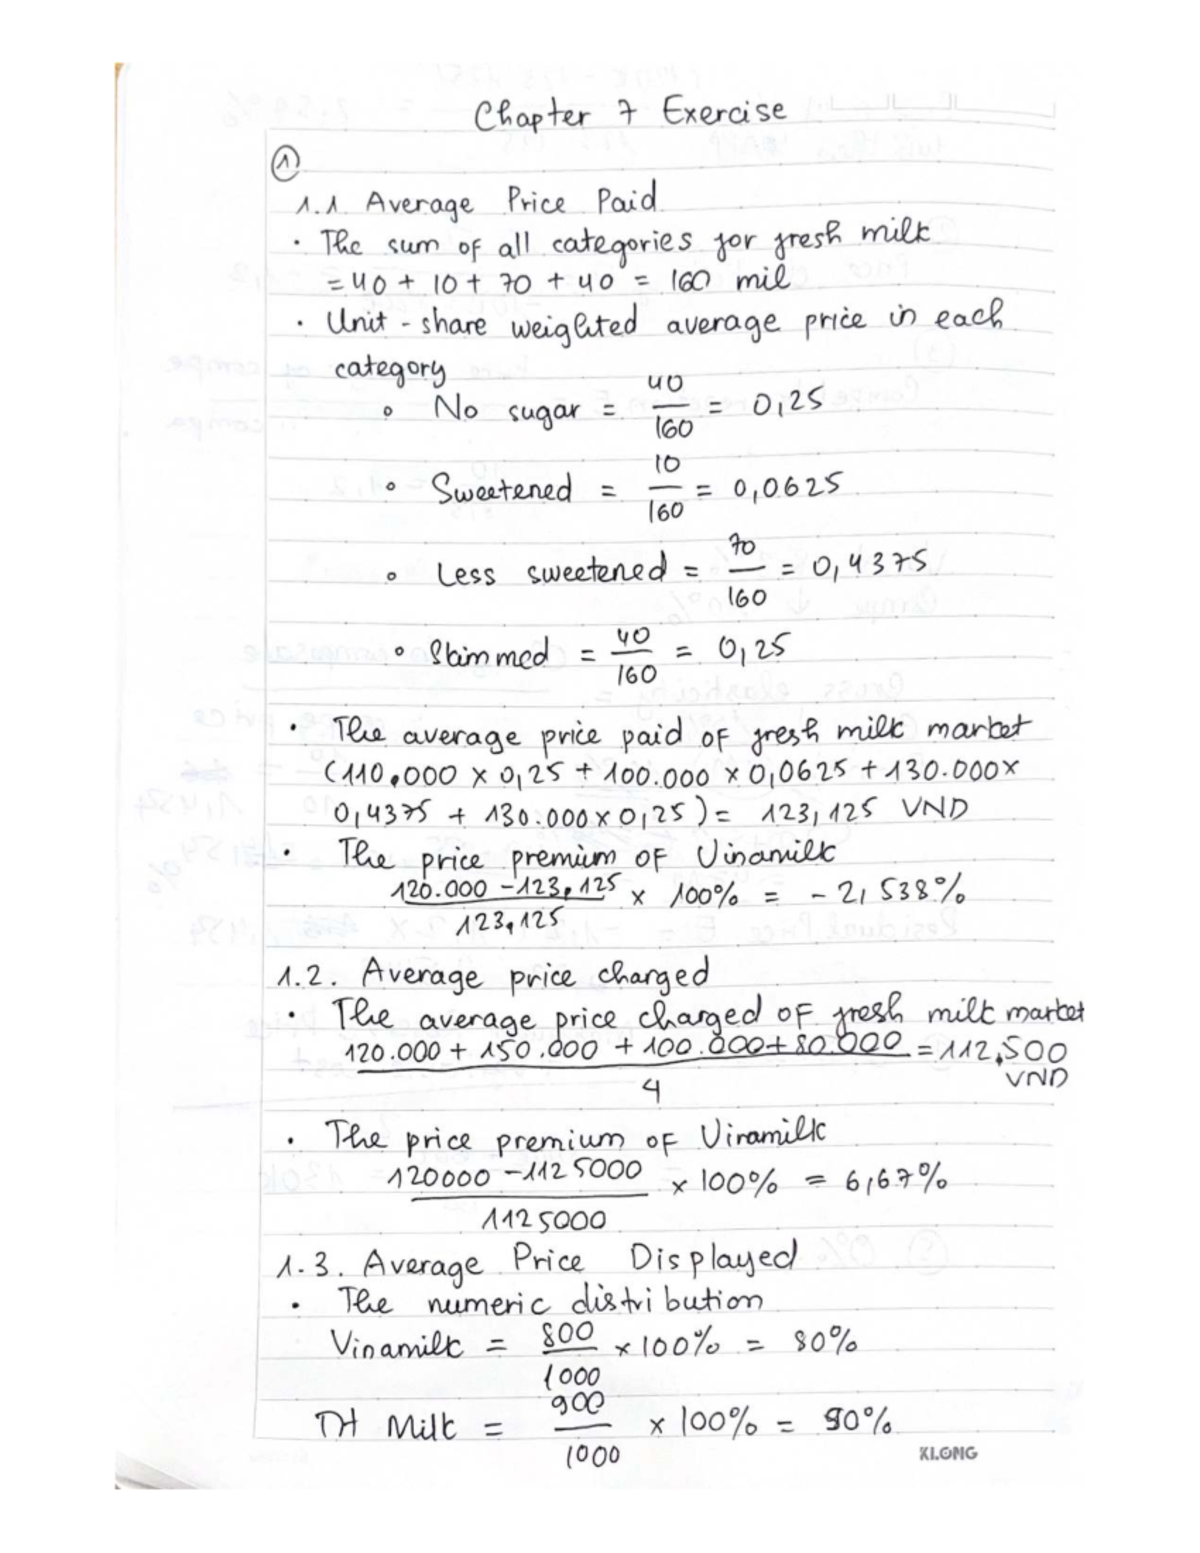 Chapter 7 Exercise
①
1.1 Average Price Paid
• The sum of all categories for fresh milk
= 40 + 10 + 70 + 40 = 160 mil
• Unit - share weighted average price in each
category
∘ No sugar = 40/160 = 0,25
∘ Sweetened = 10/160 = 0,0625
∘ Less sweetened = 70/160 = 0,4375
∘ Skimmed = 40/160 = 0,25
• The average price paid of fresh milk market
(110.000 x 0,25 + 100.000 x 0,0625 + 130.000x
0,4375 + 130.000 x 0,25) = 123,125 VND
• The price premium of Vinamilk
120.000 - 123,125 / 123,125 x 100% = - 2,538%
1.2. Average price charged
• The average price charged of fresh milk market
120.000 + 150.000 + 100.000 + 80.000 / 4 = 112.500
VND
• The price premium of Vinamilk
120000 - 1125000 / 1125000 x 100% = 6,67%
1.3. Average Price Displayed
• The numeric distribution
Vinamilk = 800/1000 x 100% = 80%
TH Milk = 900/1000 x 100% = 90%
KLONG